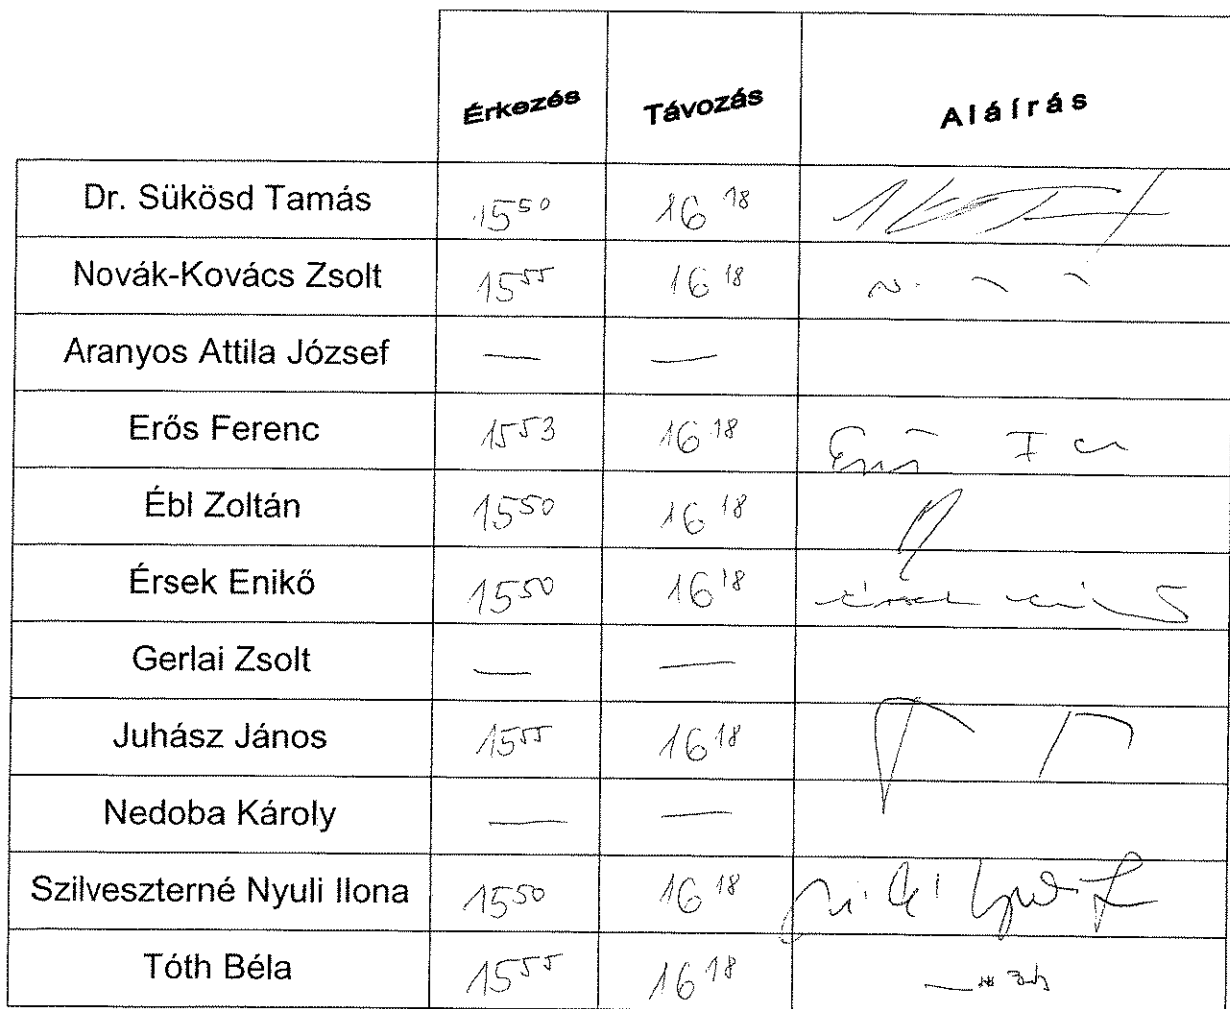 Érkezés Távozás Aláírás
Dr. Sükösd Tamás 15⁵⁰ 16¹⁸
Novák-Kovács Zsolt 15⁵⁵ 16¹⁸
Aranyos Attila József — —
Erős Ferenc 15⁵³ 16¹⁸
Ébl Zoltán 15⁵⁰ 16¹⁸
Érsek Enikő 15⁵⁰ 16¹⁸
Gerlai Zsolt — —
Juhász János 15⁵⁵ 16¹⁸
Nedoba Károly — —
Szilveszterné Nyuli Ilona 15⁵⁰ 16¹⁸
Tóth Béla 15⁵⁵ 16¹⁸